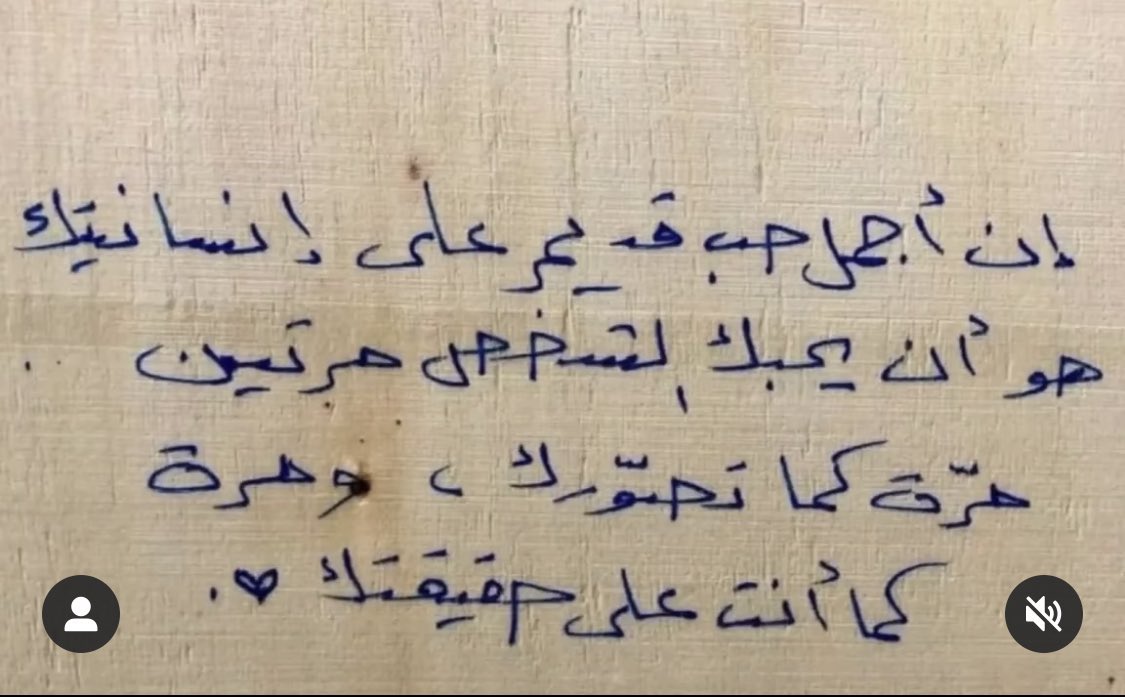 إن أجمل حب قد يمر على إنسانيتك
هو أن يحبك الشخص مرتين
مرّة كما تصوّرك ، ومرة
كما أنت على حقيقتك ♥.